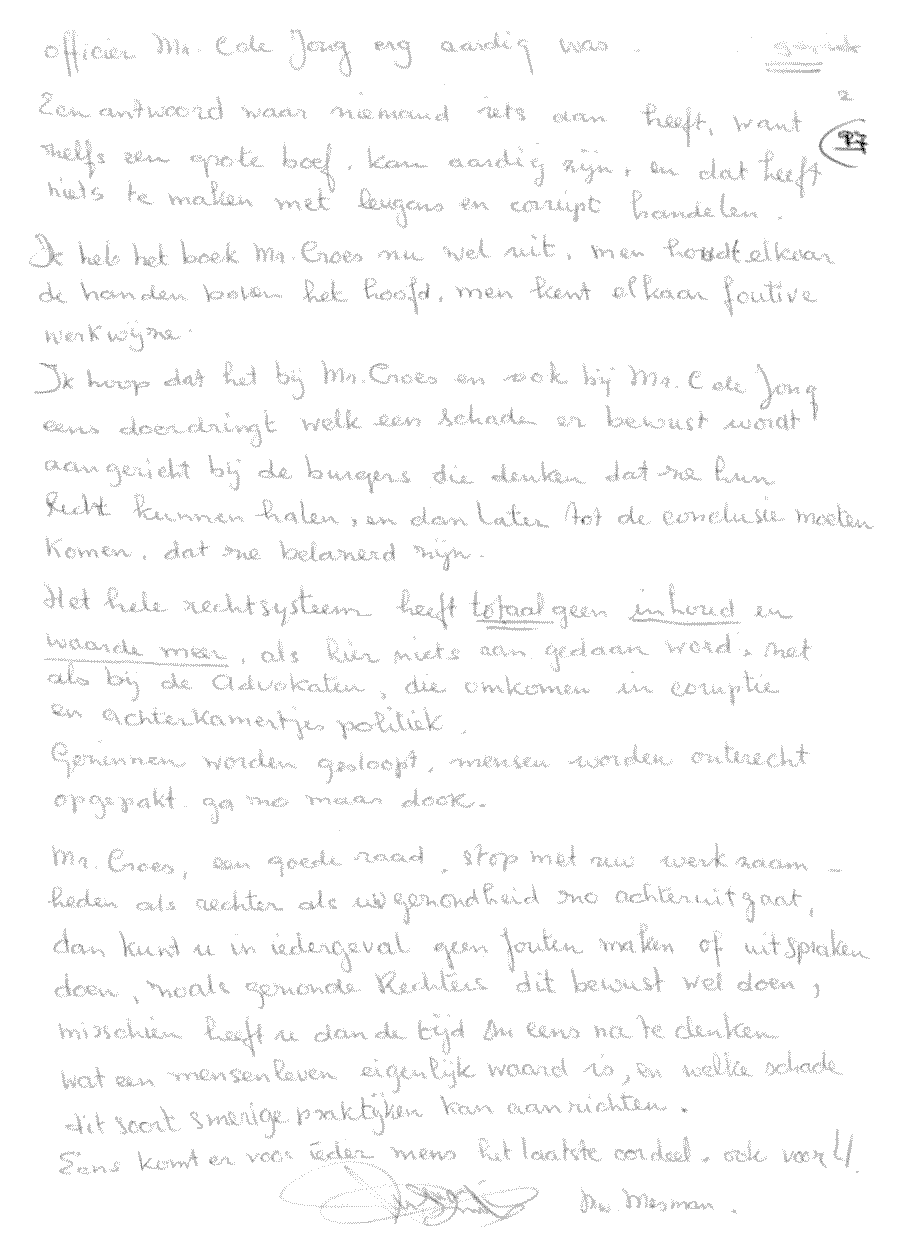 officier Mr. C de Jong erg aardig was.
2
Een antwoord waar niemand iets aan heeft, want
97
zelfs een grote boef, kan aardig zijn, en dat heeft
niets te maken met leugens en corrupt handelen.
Ik heb het boek Mr. Croes nu wel uit, men houdt elkaar
de handen boven het hoofd, men kent elkaar foutive
werkwijze.
Ik hoop dat het bij Mr. Croes en ook bij Mr. C de Jong
eens doordringt welk een schade er bewust wordt
aangericht bij de burgers die denken dat ze hun
Recht kunnen halen, en dan later tot de conclusie moeten
komen, dat ze belazerd zijn.
Het hele rechtsysteem heeft totaal geen inhoud en
waarde meer, als hier niets aan gedaan word, net
als bij de Advokaten, die omkomen in coruptie
en achterkamertjes politiek.
Gezinnen worden gesloopt, mensen worden onterecht
opgepakt ga zo maar dook.
Mr. Croes, een goede raad, stop met uw werkzaam-
heden als rechter als uw gezondheid zo achteruitgaat,
dan kunt u in iedergeval geen fouten maken of uitspraken
doen, zoals gezonde Rechters dit bewust wel doen,
misschien heeft u dan de tijd om eens na te denken
wat een mensenleven eigenlijk waard is, en welke schade
dit soort smerige praktijken kan aanrichten.
Eens komt er voor ieder mens het laatste oordeel, ook voor U.
Mesman.